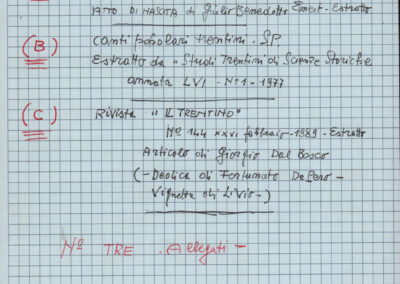 FATTO DI NASCITA di Giulio Benedetti Ernest - Estratto
(B) Canti popolari trentini - S.P.
Estratto da "Studi Trentini di Scienze Storiche
annata LVI - N° 1 - 1977
(C) Rivista "IL TRENTINO"
N° 144 XXVI febbraio - 1989 - Estratto
Articolo di Giorgio Dal Bosco
(- Dedica di Fortunato Depero -
Vignetta di Livio -)
N° TRE Allegati -